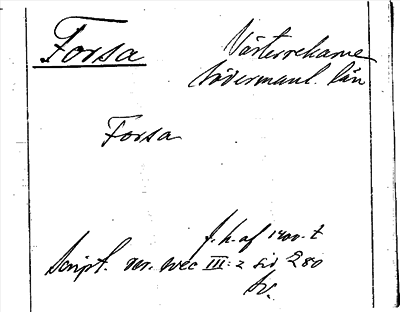 Forsa
Västerrekarne
Södermanl. län
Forsa
f. h. af 1400-t
Script. rer. svec III:2 sid 280
Sv.